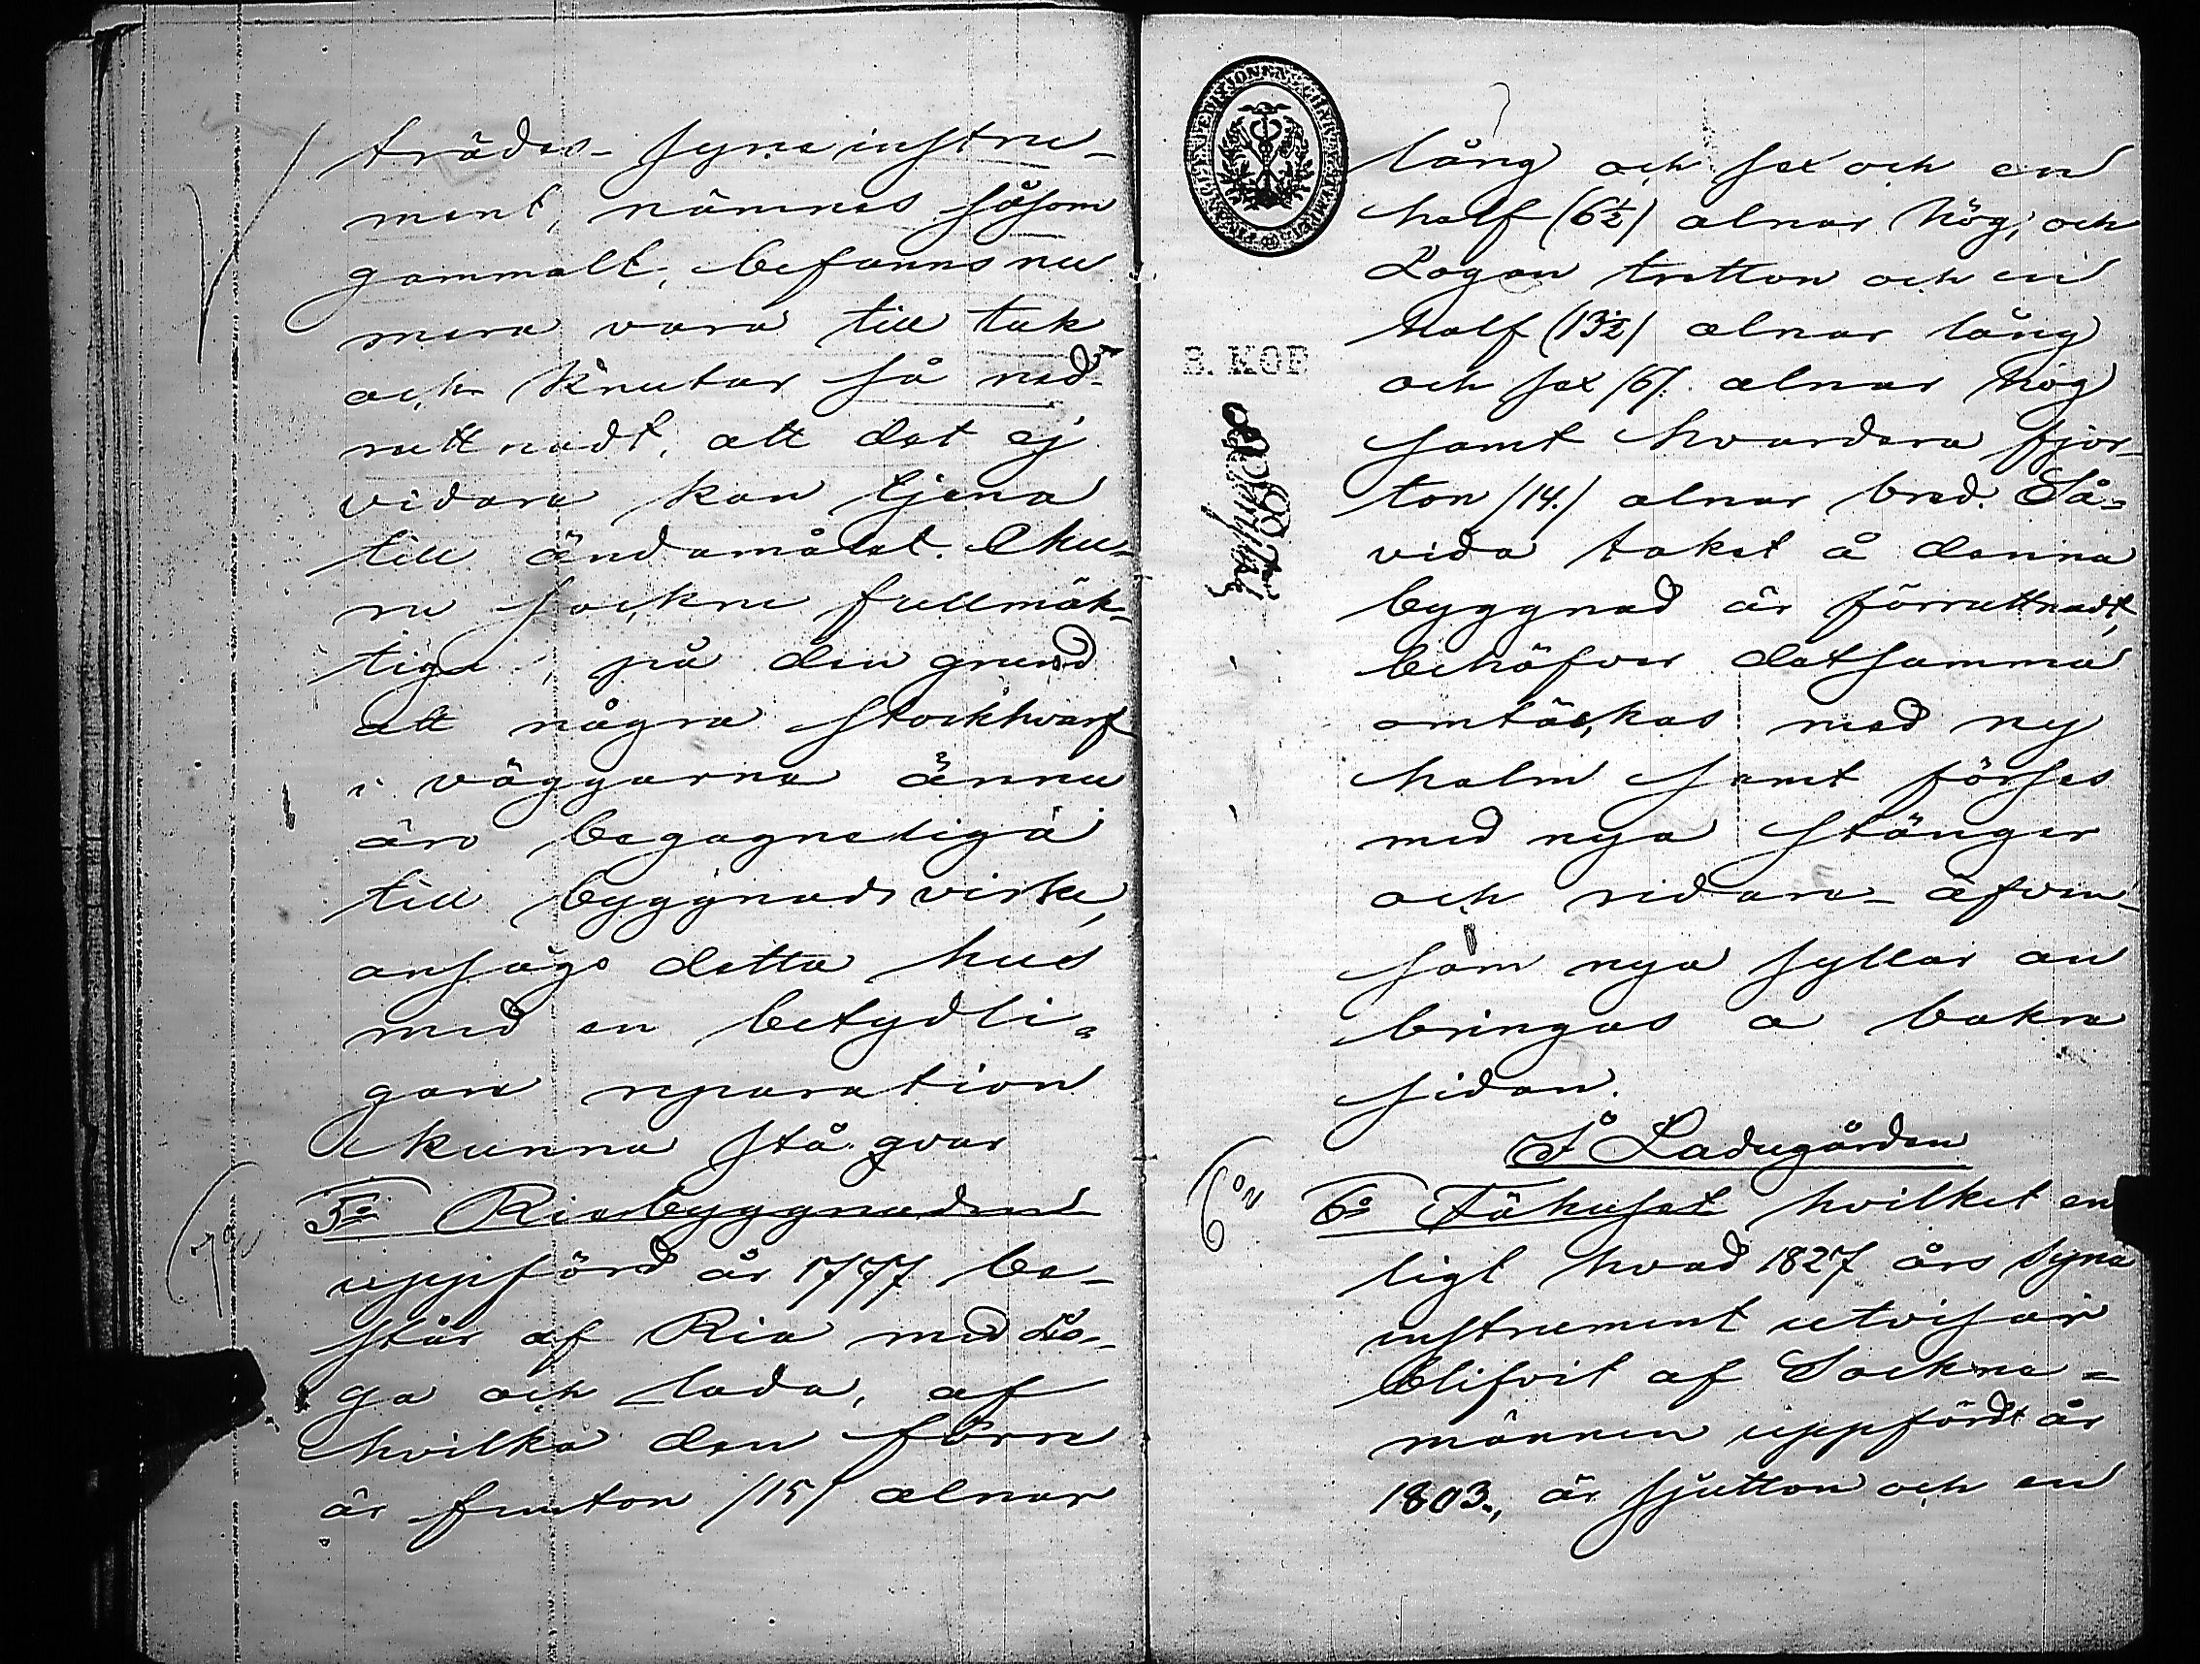 trädes- syneinstru-
ment, nämnes såsom
gammalt, befanns nu
mera vara till tak
och knutar så ned-
ruttnadt, att det ej
vidare kan tjena
till ändamålet. Enu-
ru sockne fullmäk-
tige, på den grund
att några stockhvarf
i väggarna ännu
äro begagneliga
till byggnadsvirke,
ansågo detta hus
med en betydli-
gare reparation
kunna stå qvar
5:o Riebyggnaden
uppförd år 1777 be-
står af Ria med Lo-
ga och lada, af
hvilka den förre
är femton /15/ alnar
lång och sex och en
half (6½) alnar hög, och
Logan tretton och en
half (13½) alnar lång
och sex /6/. alnar hög
samt hvardera fjor-
ton /14./ alnar bred. Så-
vida taket å denna
byggnad är förruttnadt,
behöfver detsamma
omtäckas med ny
halm samt förses
med nya stänger
och ridare- äfven-
som nya syllar an
bringas a bakre
sidan.
I Ladugården
6:o Fähuset hvilket en
ligt hvad 1827 års syne
instrument utvisar
blifvit af Sockne-
männen uppfördt år
1803., är sjutton och en